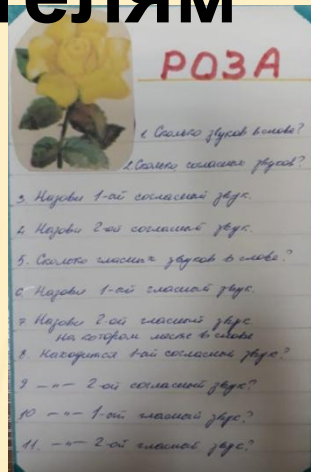 телям
РОЗА
1. Сколько звуков в слове?
2. Сколько согласных звуков?
3. Назови 1-ый согласный звук.
4. Назови 2-ой согласный звук.
5. Сколько гласных звуков в слове?
6. Назови 1-ый гласный звук.
7. Назови 2-ой гласный звук
На котором месте в слове
8. Находится 1-ый согласный звук?
9 —"— 2-ой согласный звук?
10 —"— 1-ый гласный звук?
11. —"— 2-ой гласный звук?